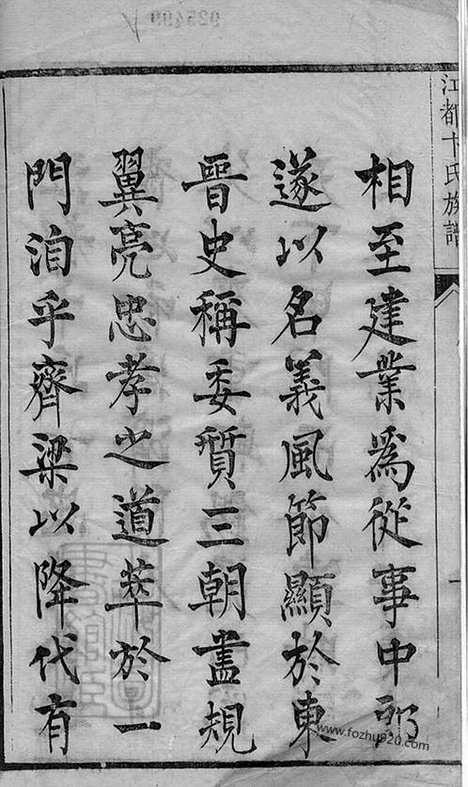 925499
江都卞氏族譜
相至建業爲從事中郎
遂以名義風節顯於東
晉史稱委質三朝盡規
翼亮忠孝之道萃於一
門洎乎齊梁以降代有
www.fozhu920.com